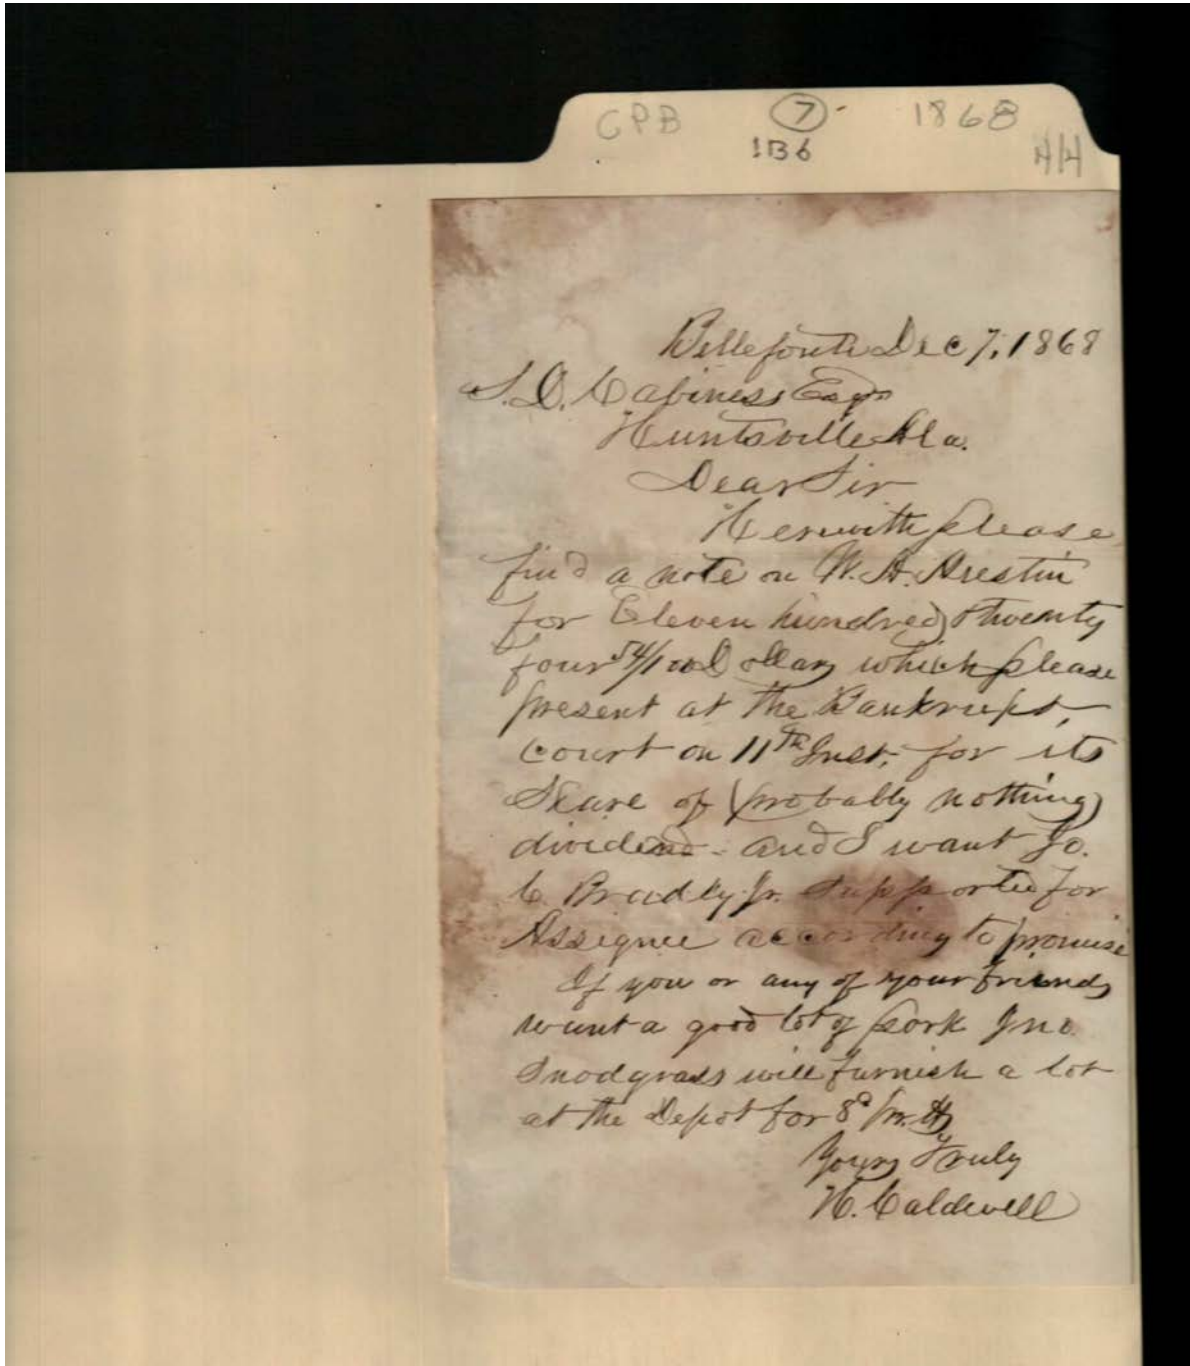 CPB 7 1868
1B6
Bellefonte Dec 7, 1868
S. D. Cabiness Esqr
Huntsville Ala.
Dear Sir
Herewith please
find a note on W. H.
for Eleven hundred & twenty
four 54/100 Dollars which please
present at the Bankrupt,
Court on 11th Inst, for its
Share of (probably nothing)
dividend - and I want Jo.
C. Bradly Jr. supported for
Assignee according to promise
If you or any of your friends
want a good lot of pork Jno.
Snodgrass will furnish a lot
at the Depot for 8c pr.
Yours Truly
H. Caldwell